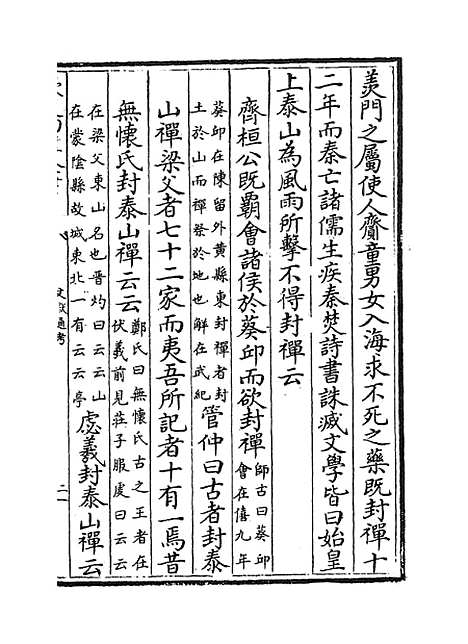 羡門之屬使人齎童男女入海求不死之藥既封禪十
二年而秦亡諸儒生疾秦焚詩書誅滅文學皆曰始皇
上泰山為風雨所擊不得封禪云
齊桓公既霸會諸侯於葵邱而欲封禪
師古曰葵邱
會在僖九年
葵邱在陳留外黄縣東封禪者封
土於山而禪祭於地也解在武紀
管仲曰古者封泰
山禪梁父者七十二家而夷吾所記者十有一焉昔
無懷氏封泰山禪云云
鄭氏曰無懷氏古之王者在
伏羲前見莊子服虔曰云云
在梁父東山名也晋灼曰云云山
在蒙隂縣故城東北一有云云亭
虙羲封泰山禪云
文獻通考